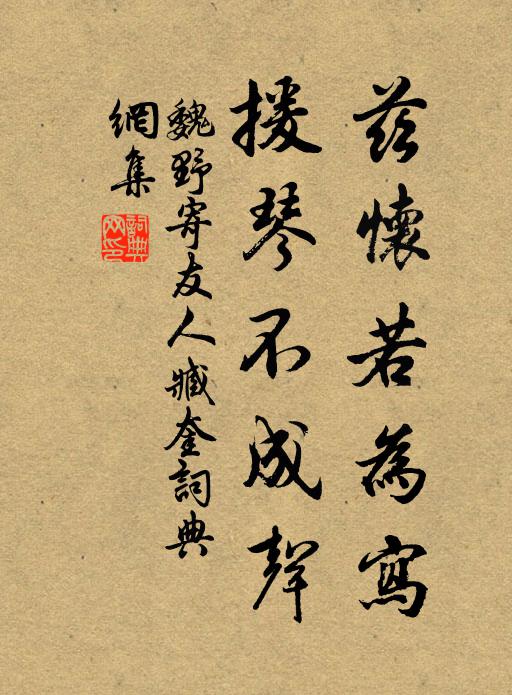 茲懷若為寫
援琴不成聲
魏野寄友人臧奎詞典
網集
詞典
网印